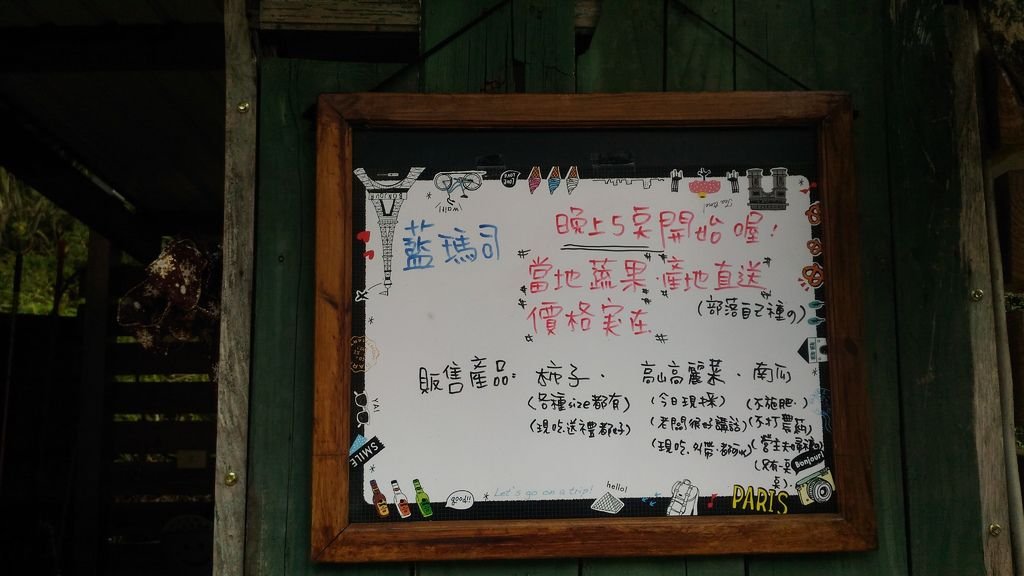 藍瑪司
晚上5桌開始喔!
當地蔬果·產地直送
(部落自己種の)
價格実在
販售產品: 柿子. 高山高麗菜. 南瓜
(各種size都有) (今日現採) (不施肥.)
(現吃送禮都好) (老闆很好講話) (不打農藥)
(現吃.外帶.都可以)
只有一桌
wait!
Tea time!
YA!
SMILE
GOOD!!
Let's go on a trip!
hello!
PARIS
Bonjour!